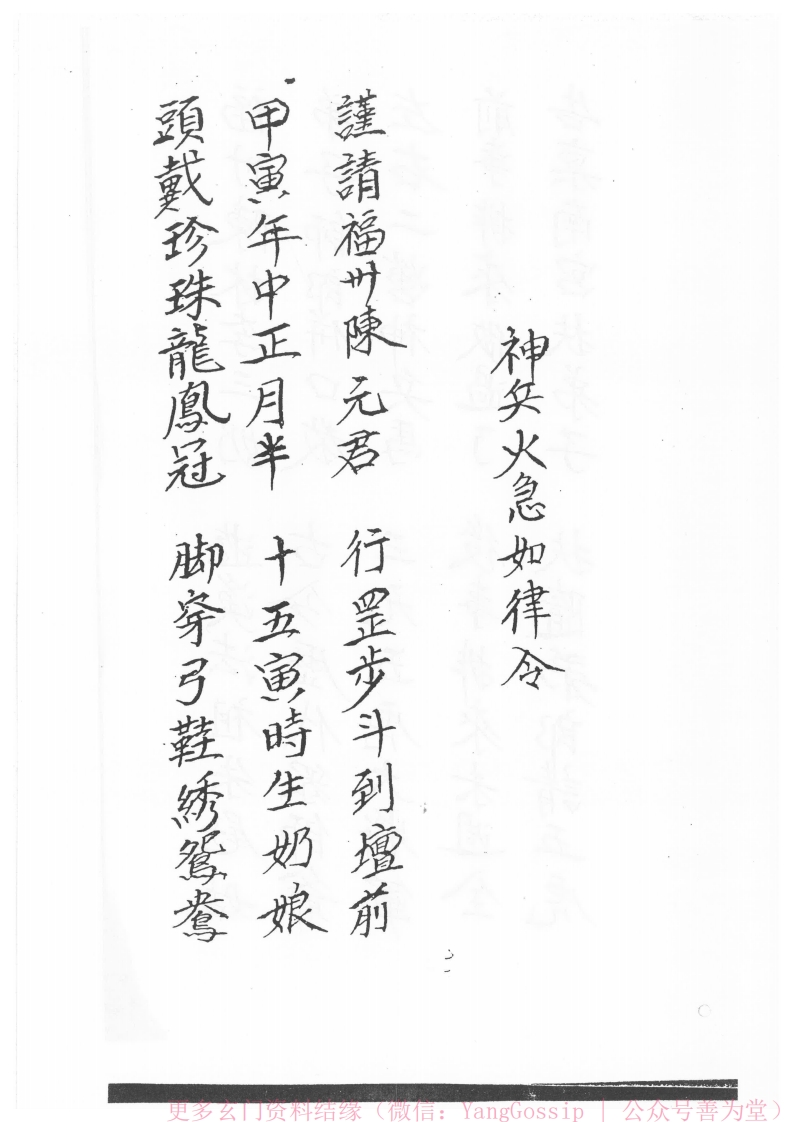 神兵火急如律令
謹請福州陳元君　行罡步斗到壇前
甲寅年中正月半　十五寅時生奶娘
頭戴珍珠龍鳳冠　脚穿弓鞋綉鴛鴦
更多玄门资料结缘（微信：YangGossip | 公众号善为堂）